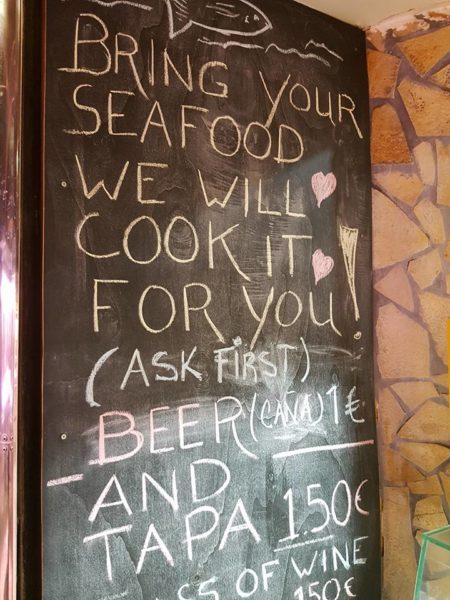 BRING YOUR
SEAFOOD
WE WILL
COOK IT
FOR YOU!
(ASK FIRST)
BEER (CAÑA) 1€
AND
TAPA 1.50€
OF WINE
150€